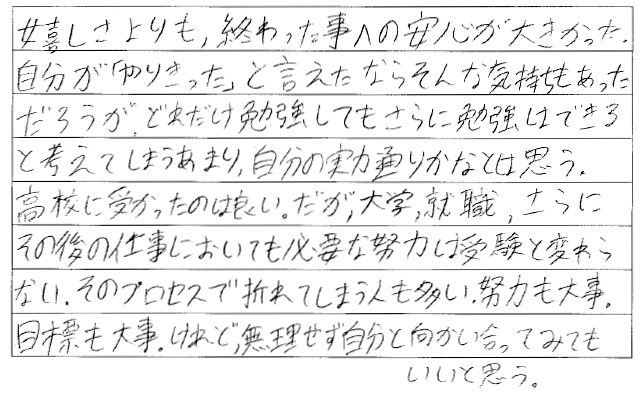 嬉しさよりも,終わった事への安心が大きかった.
自分が「やりきった」と言えたならそんな気持ちもあった
だろうが,どれだけ勉強してもさらに勉強はできる
と考えてしまうあまり,自分の実力通りかなとは思う.
高校に受かったのは良い。だが,大学,就職,さらに
その後の仕事においても必要な努力は受験と変わら
ない.そのプロセスで折れてしまう人も多い.努力も大事.
目標も大事.けれど,無理せず自分と向かい合ってみても
いいと思う。